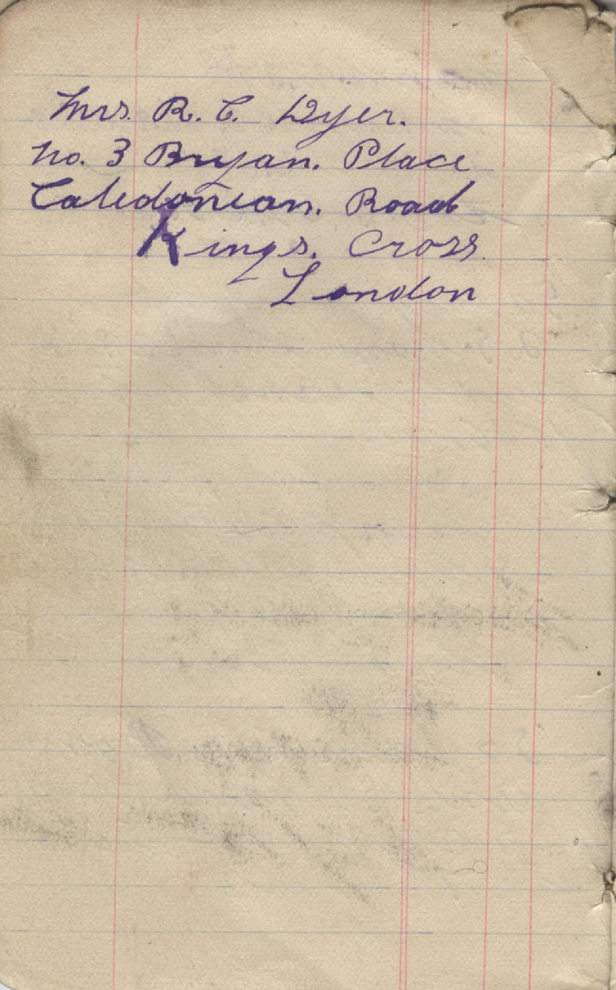 Mrs. R. C. Dyer.
No. 3 Bryan. Place
Caledonian. Road
Kings. Cross.
London